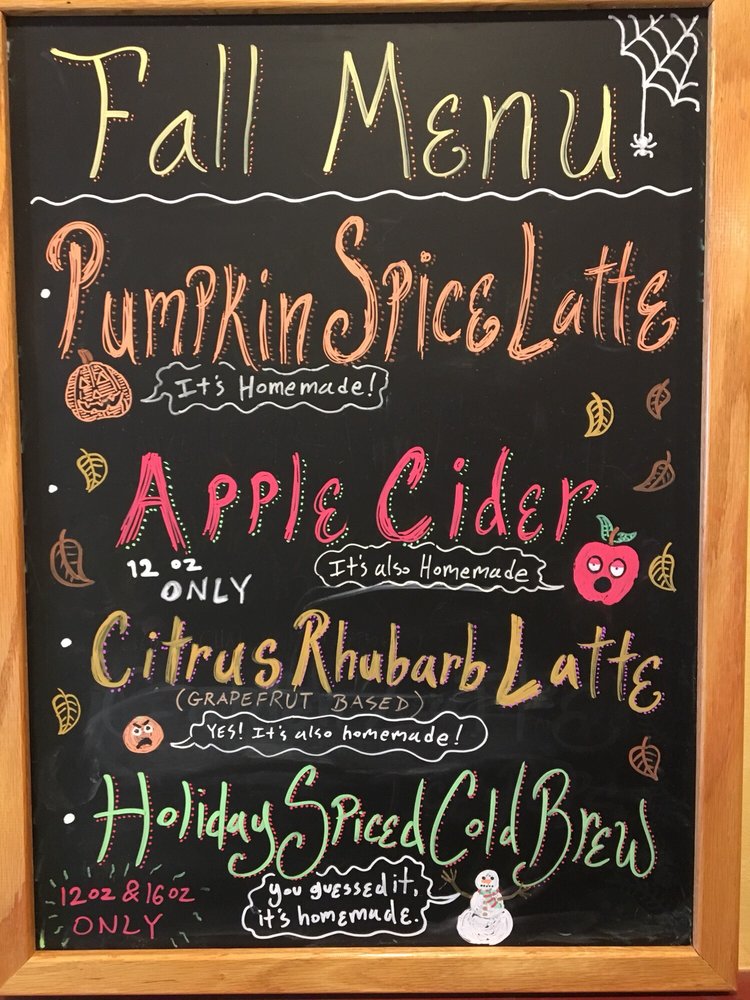 Fall Menu
Pumpkin Spice Latte
It's Homemade!
Apple Cider
12 oz
ONLY
It's also Homemade
Citrus Rhubarb Latte
(GRAPEFRUT BASED)
YES! It's also homemade!
Holiday Spiced Cold Brew
12oz & 16oz
ONLY
you guessed it,
it's homemade.